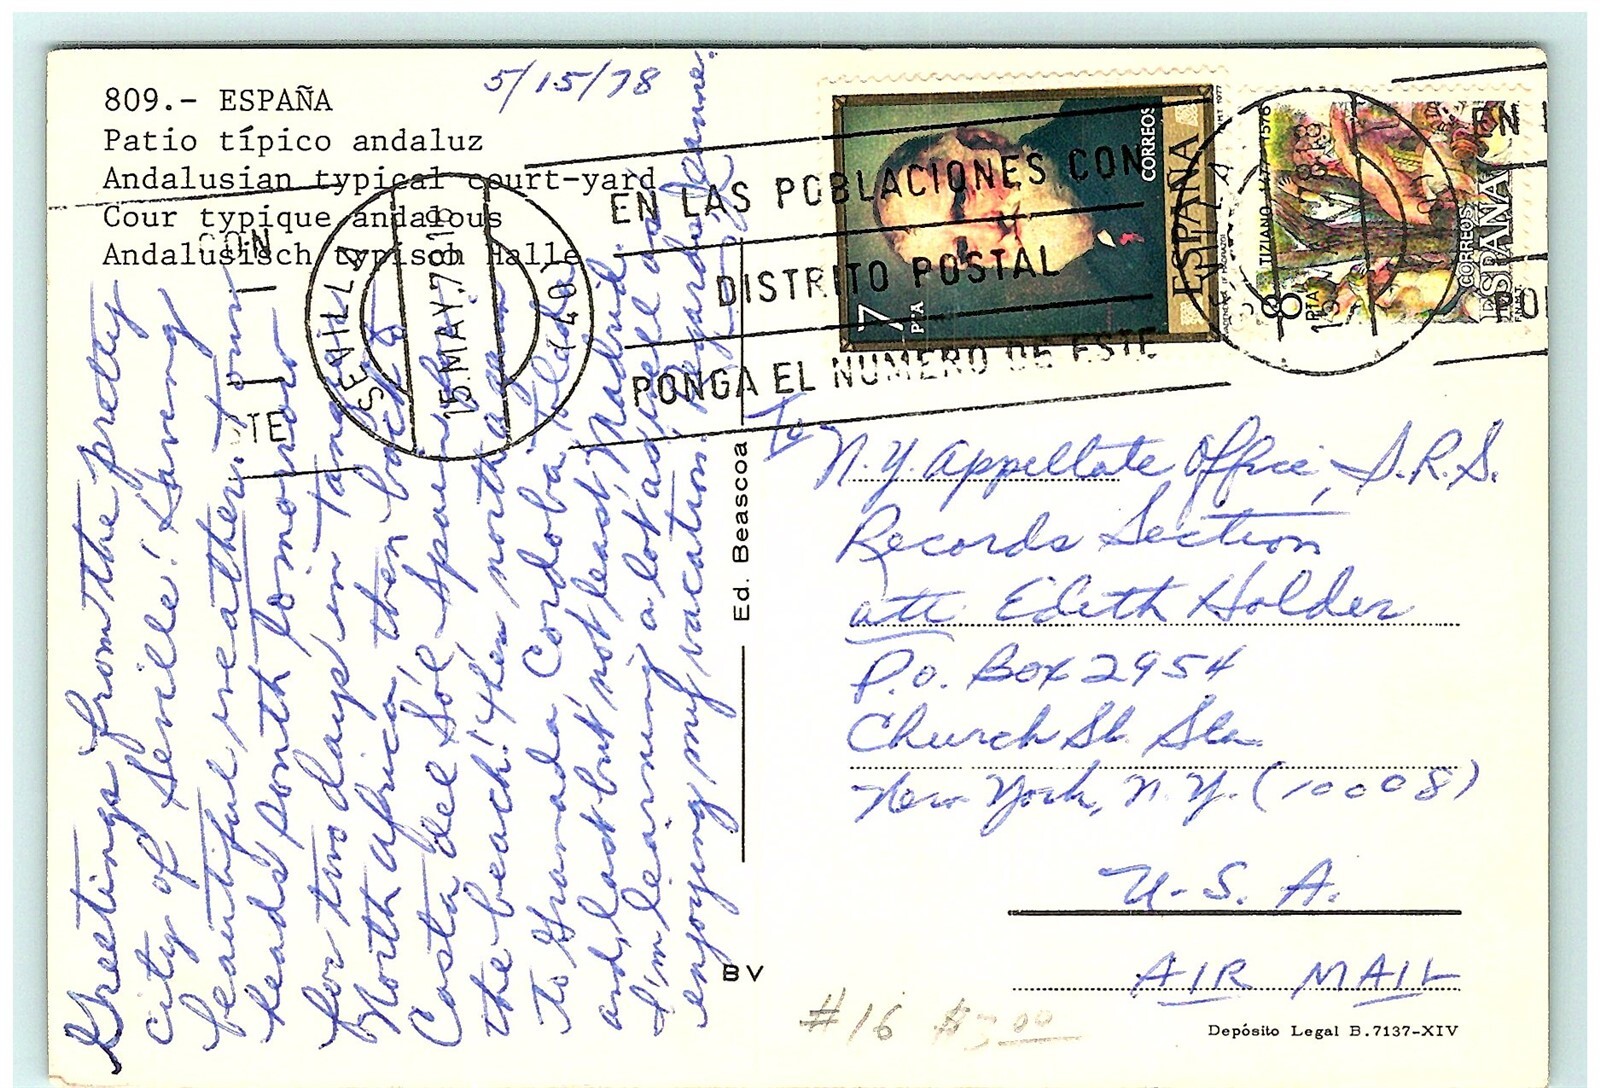 809.- ESPAÑA
Patio típico andaluz
Andalusian typical court-yard
Cour typique andalous
Andalusisch typisch Halle
5/15/78
Greetings from the pretty
city of Seville! Having
beautiful weather. Tour
heads south tomorrow
for two days in Tangier,
North Africa, then back to
Costa del Sol-Spain for
the beach! Then north again
to Granada, Cordoba, Toledo,
and, last but not least, Madrid.
I'm learning a lot as well as
enjoying my vacation. Regards, Jeanne.
SEVILLA
15.MAY.78
(40)
EN LAS POBLACIONES CON
DISTRITO POSTAL
PONGA EL NUMERO DE ESTE
CON
STE
EN
PO
7
PTA
CORREOS
ESPAÑA
TIZIANO 1477-1576
8
PTA
CORREOS
ESPAÑA
F.N.M.T.
Ed. Beascoa
BV
To
N.Y. Appellate Office, I.R.S.
Records Section
att: Edith Holder
P.O. Box 2954
Church St. Sta.
New York, N.Y. (10008)
U.S.A.
AIR MAIL
#16 $3.00
Depósito Legal B.7137-XIV